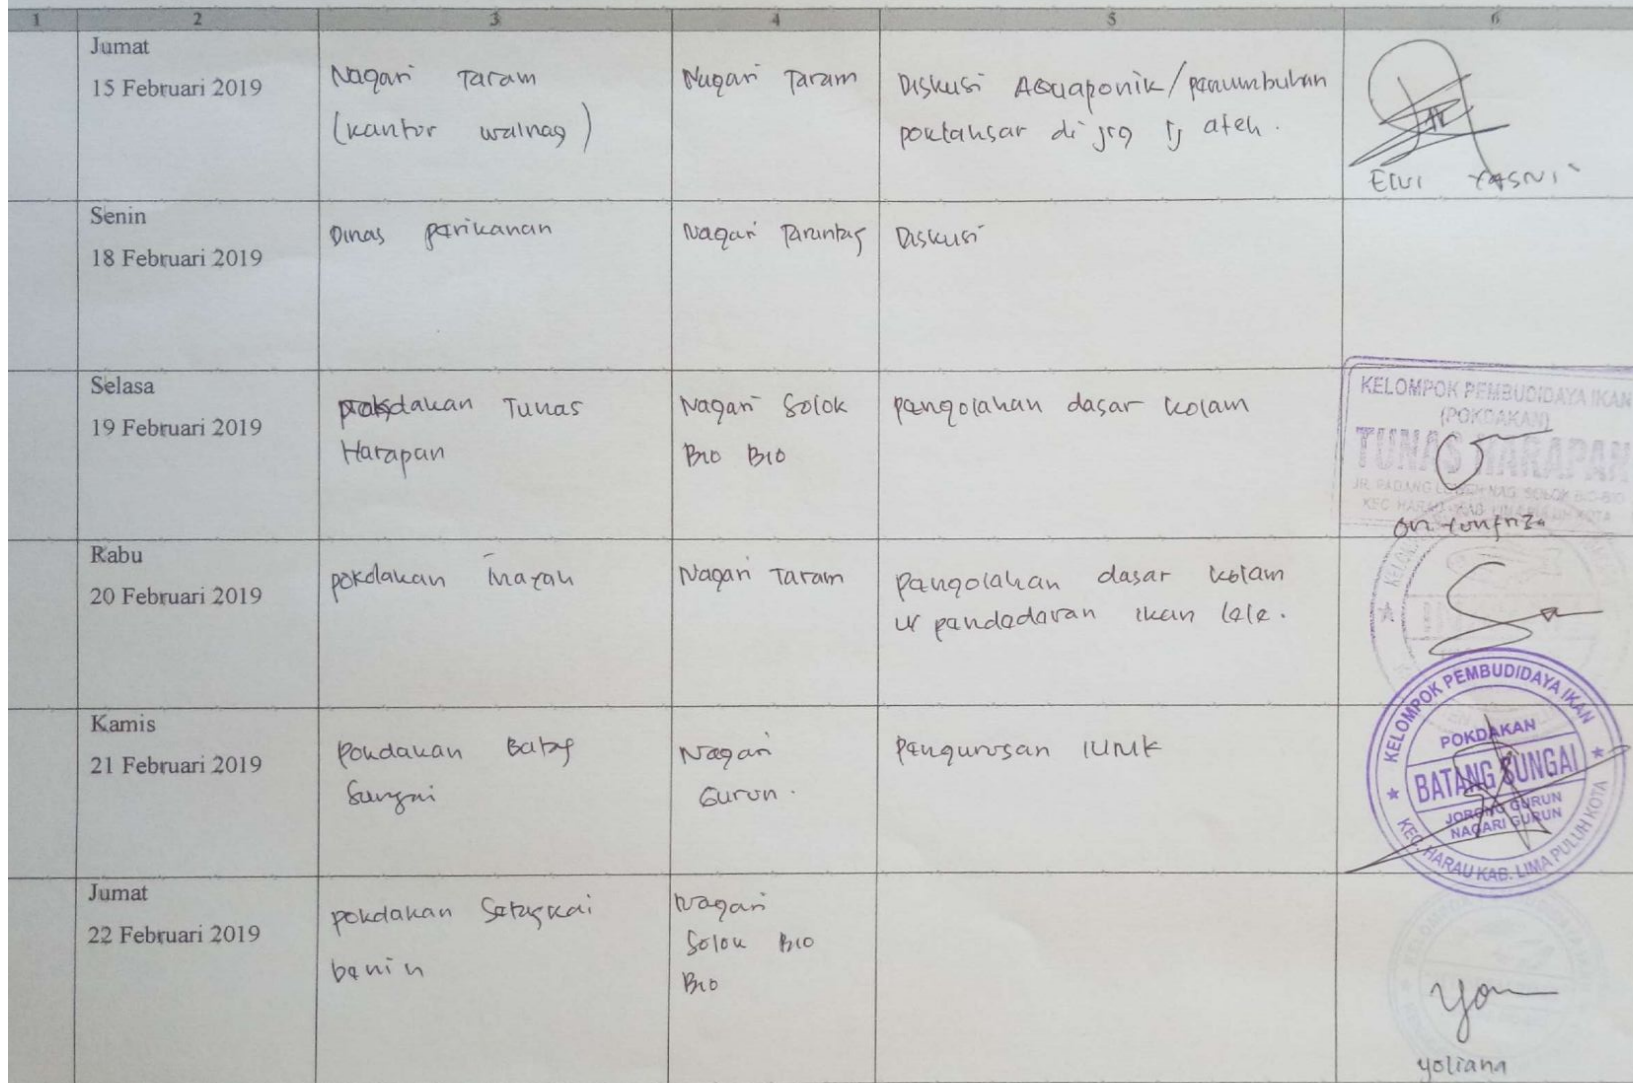 1 2 3 4 5 6
Jumat
15 Februari 2019
Nagari Taram
(kantor walnag)
Nagari Taram
Diskusi Aquaponik/penumbuhan
poklahsar di jrg Tj ateh.
ELVI YASNI
Senin
18 Februari 2019
Dinas perikanan
Nagari Tarantag
Diskusi
Selasa
19 Februari 2019
pokdakan Tunas
Harapan
Nagari Solok
Bio Bio
pengolahan dasar kolam
KELOMPOK PEMBUDIDAYA IKAN
(POKDAKAN)
TUNAS HARAPAN
JR. PADANG NAG. SOLOK BIO-BIO
KEC. HARAU KAB. LIMA PULUH KOTA
Rabu
20 Februari 2019
pokdakan
Nagari Taram
pengolahan dasar kolam
u/ pendederan ikan lele.
Kamis
21 Februari 2019
pokdakan Batag
Sungai
Nagari
Gurun.
pengurusan IUMK
KELOMPOK PEMBUDIDAYA IKAN
POKDAKAN
BATANG SUNGAI
JORONG GURUN
NAGARI GURUN
KEC. HARAU KAB. LIMA PULUH KOTA
Jumat
22 Februari 2019
pokdakan Satagkai
benih
Nagari
Solok Bio
Bio
yoliana